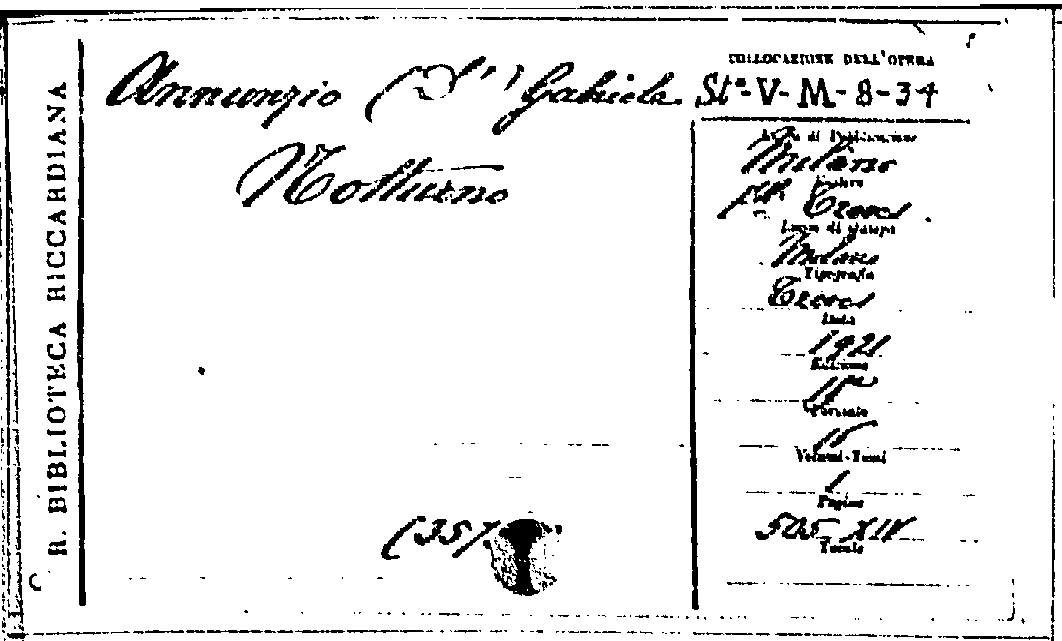 R. BIBLIOTECA RICCARDIANA
Annunzio (D') Gabriele
Notturno
(35)
COLLOCAZIONE DELL'OPERA
Stª-V-M-8-34
Luogo di Pubblicazione
Milano
Editore
Treves
Luogo di stampa
Milano
Tipografia
Treves
Data
1921
Edizione
Formato
Volumi-Tomi
1
Pagine
505-XIV
Tavole